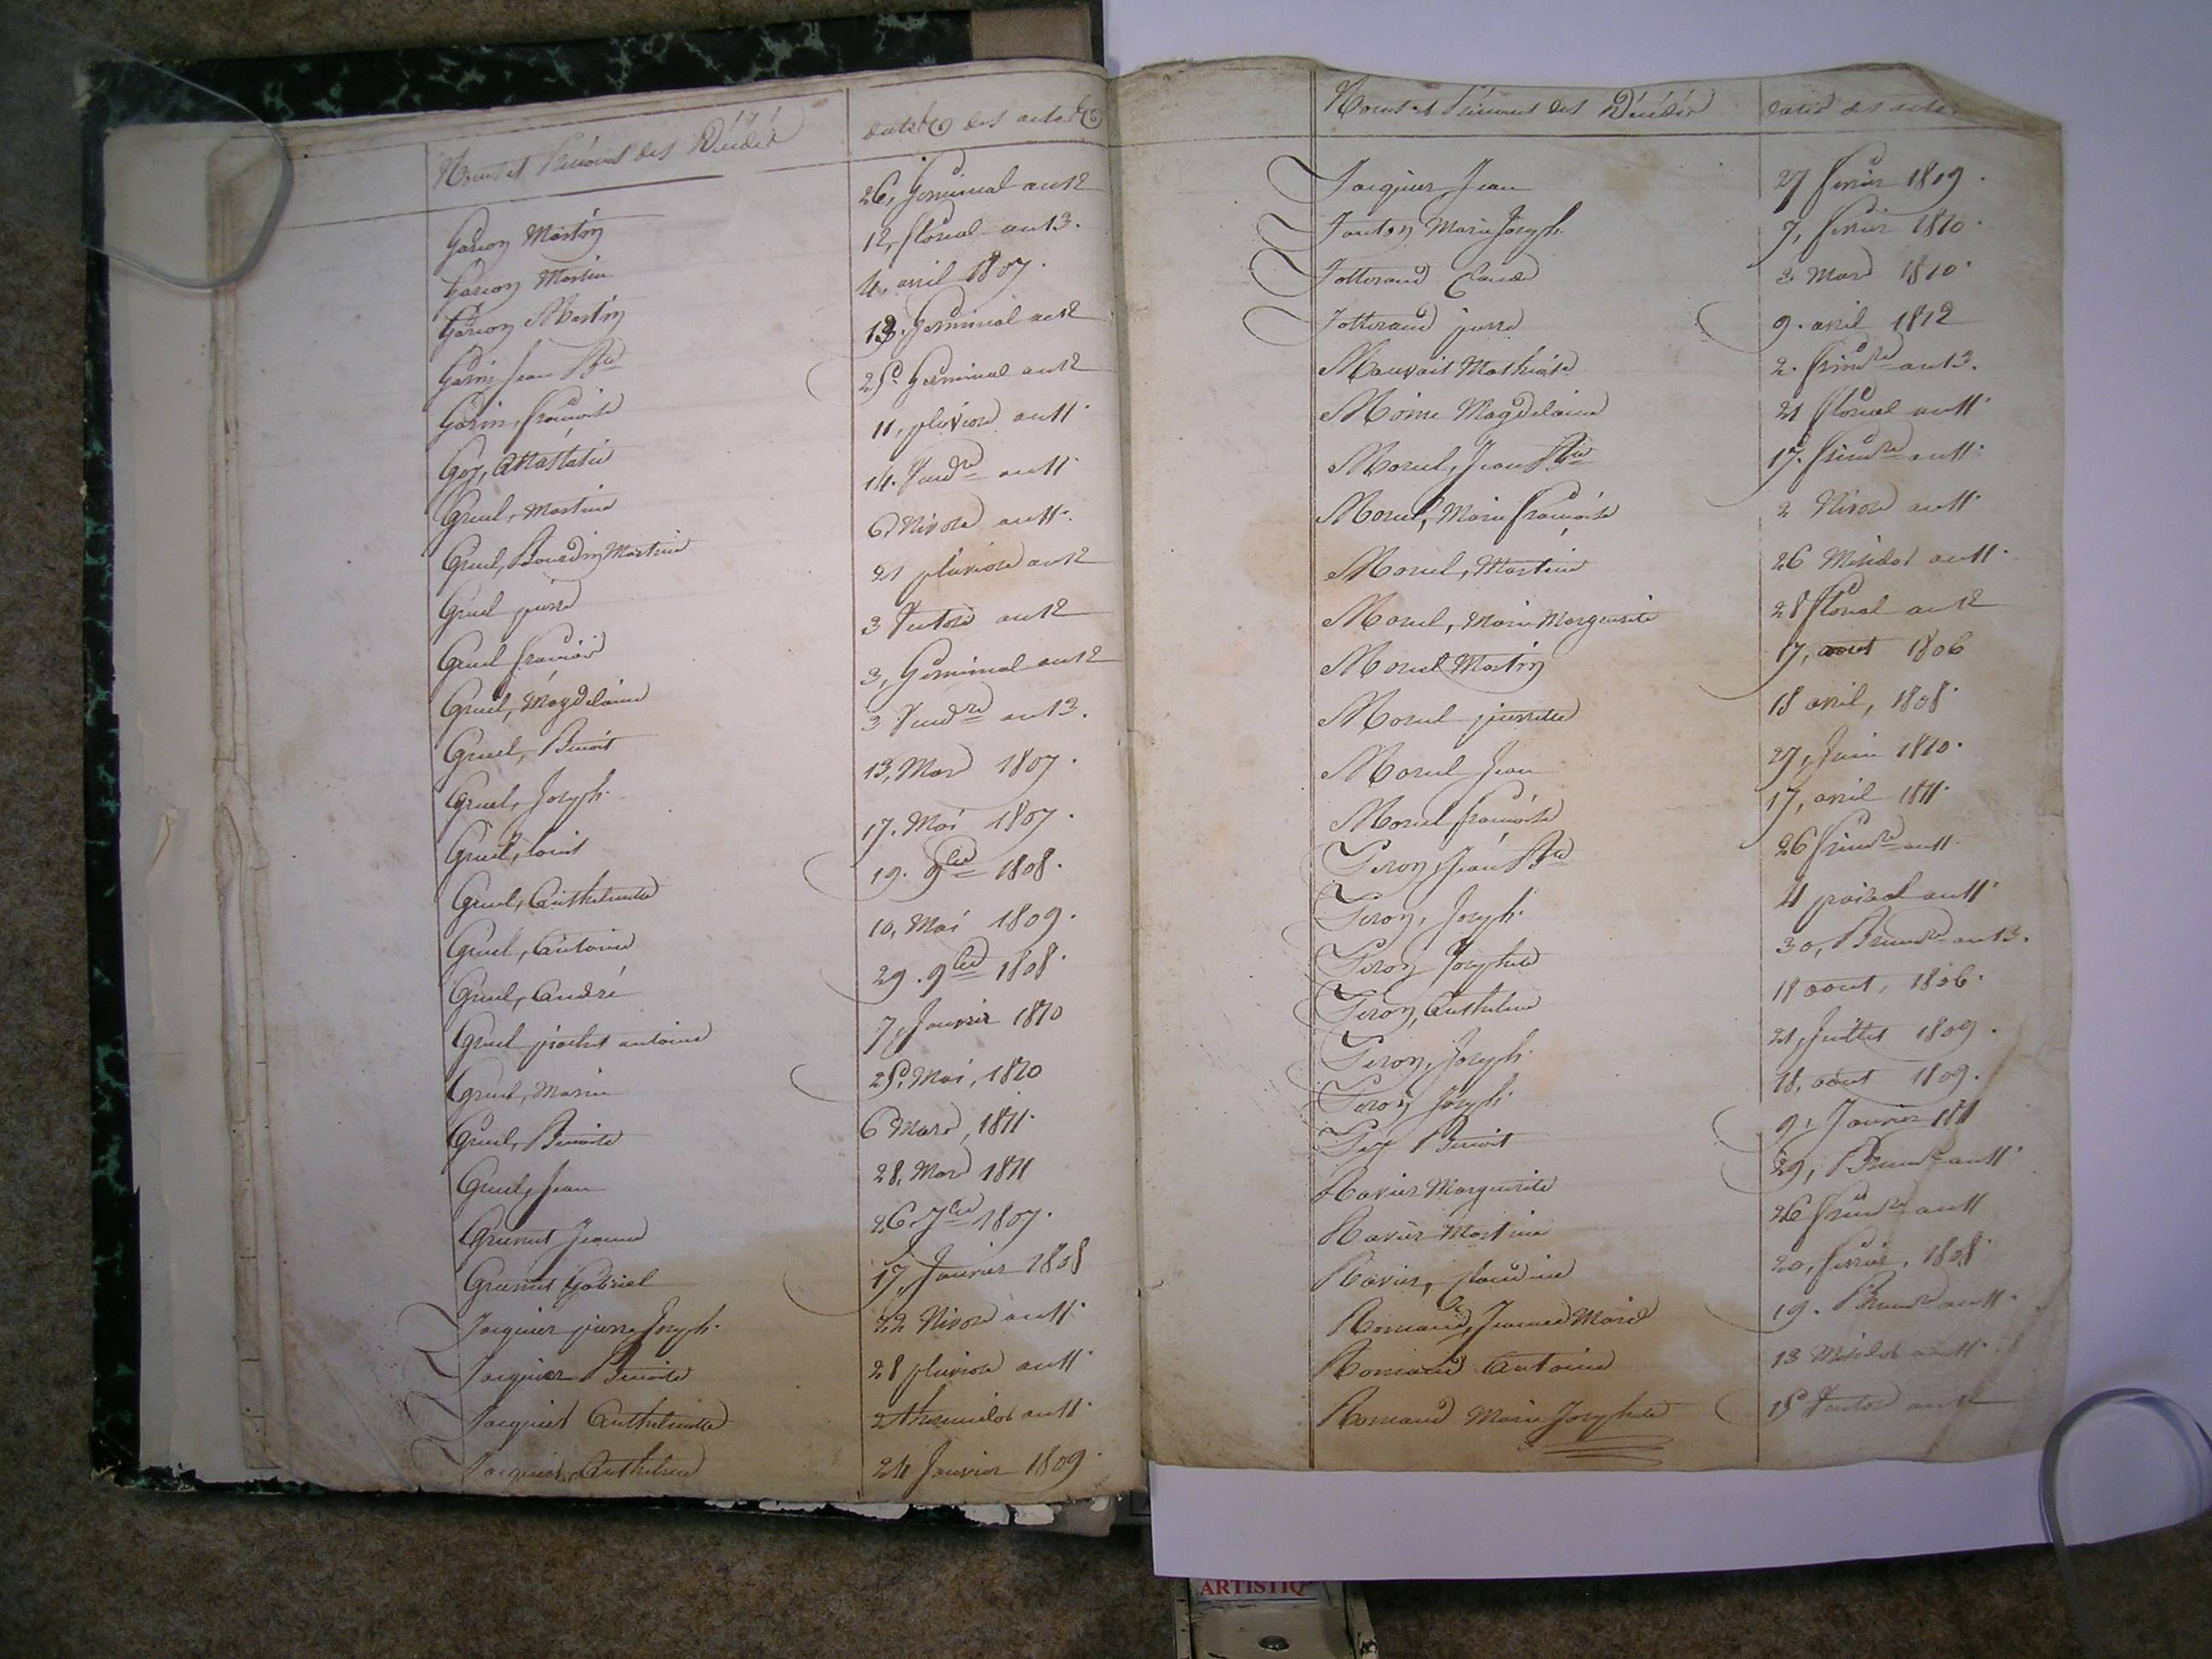 Noms et Prénoms des Décédés dates des actes
Garion Martin 26, Germinal an 12
Garion Martin 12, floréal an 13.
Garion Martin 4, avril 1807.
Garin Jean Bte 13. Germinal an 12
Garin, françoise 25. Germinal an 12
Goy, Anastasie 11, pluviose an 11.
Gruel, Martine 14. Vendre an 11.
Gruel, Bourdin Martine 6 Nivose an 11.
Gruel pierre 21 pluviose an 12
Gruel françois 3 Ventose an 12
Gruel, Magdelaine 3, Germinal an 12
Gruel, Benoit 3 Vendre an 13.
Gruel, Joseph. 13, Mars 1807.
Gruel, Louis 17. Mai 1807.
Gruel, Anthelmette 19. 9bre 1808.
Gruel, Antoine 10, Mai 1809.
Gruel, André 29. 9bre 1808.
Gruel piochet antoine 7, Janvier 1810
Gruel, Marie 25, Mai, 1810
Gruel, Benoite 6 Mars, 1811.
Gruel, Jean 28, Mars 1811
Jeanne 26. 7bre 1807.
Gabriel 17, Janvier 1808
Jacquier pierre Joseph. 22 Nivose an 11.
Jacquier Benoite 28 pluviose an 11.
Jacquier Anthelmette 2 thermidor an 11.
Jacquier, Anthelme 24 Janvier 1809.
Noms et Prénoms des Décédés dates des actes
Jacquier, Jean 27 fevrier 1809.
Janton Marie Joseph. 7, fevrier 1810.
Jotterand Claude 3 Mars 1810.
Jotterand pierre 9. avril 1812
Mauvais Mathiase 2. frimre an 13.
Moine Magdelaine 21 floréal an 11.
Morel, Jean Bte 17. frimre an 11.
Morel, Marie françoise 2 Nivose an 11.
Morel, Martine 26 Messidor an 11.
Morel, Marie Marguerite 28 floréal an 12
Morel Martin 17, aout 1806
Morel pierrette 18 avril, 1808.
Morel Jean 27, Juin 1810.
Morel françoise 17, avril 1811.
Peron, Jean Bte 26 frimre an 11.
Peron, Joseph. 4 prairial an 11.
Peron Josephte 30, Brumre an 13.
Peron, Anthelme 11 aout, 1806.
Peron, Joseph. 21, Juillet 1809.
Peron Joseph. 18, aout 1809.
Benoit 9, Janvier 1811
Ravier Marguerite 29, Brumre an 11.
Ravier Martine 26 frimre an 11
Ravier, Claudine 20, fevrier, 1808.
Romand, Jeanne Marie 19. Brumre an 11.
Romand Antoine 13 Messidor an 11.
Romand Marie Josephte 15 Ventose an 12
ARTISTIQ